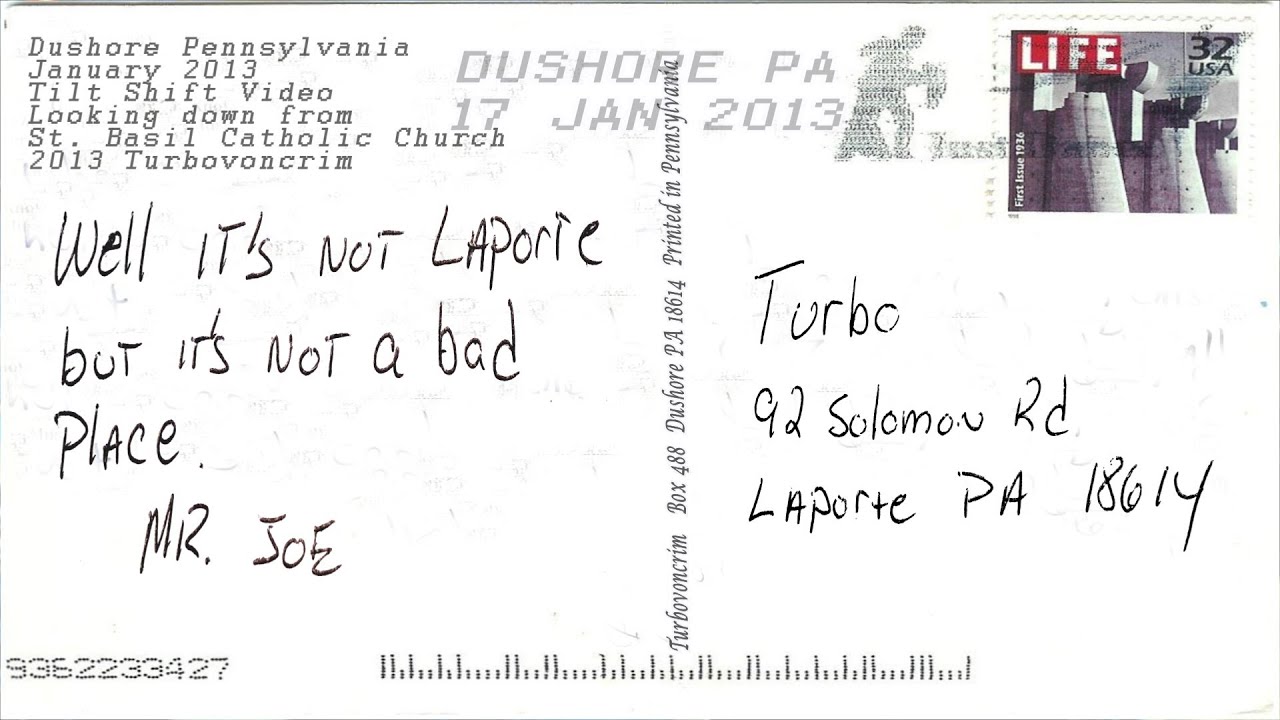 Dushore Pennsylvania
January 2013
Tilt Shift Video
Looking down from
St. Basil Catholic Church
2013 Turbovoncrim
DUSHORE PA
17 JAN 2013
LIFE
32
USA
First Issue 1936
1998
Well IT's NOT LAPORTE
but IT's NOT a bad
PLACE.
MR. JOE
Turbovoncrim Box 488 Dushore PA 18614 Printed in Pennsylvania
Turbo
92 Solomon Rd
LAPORTE PA 18614
9362233427